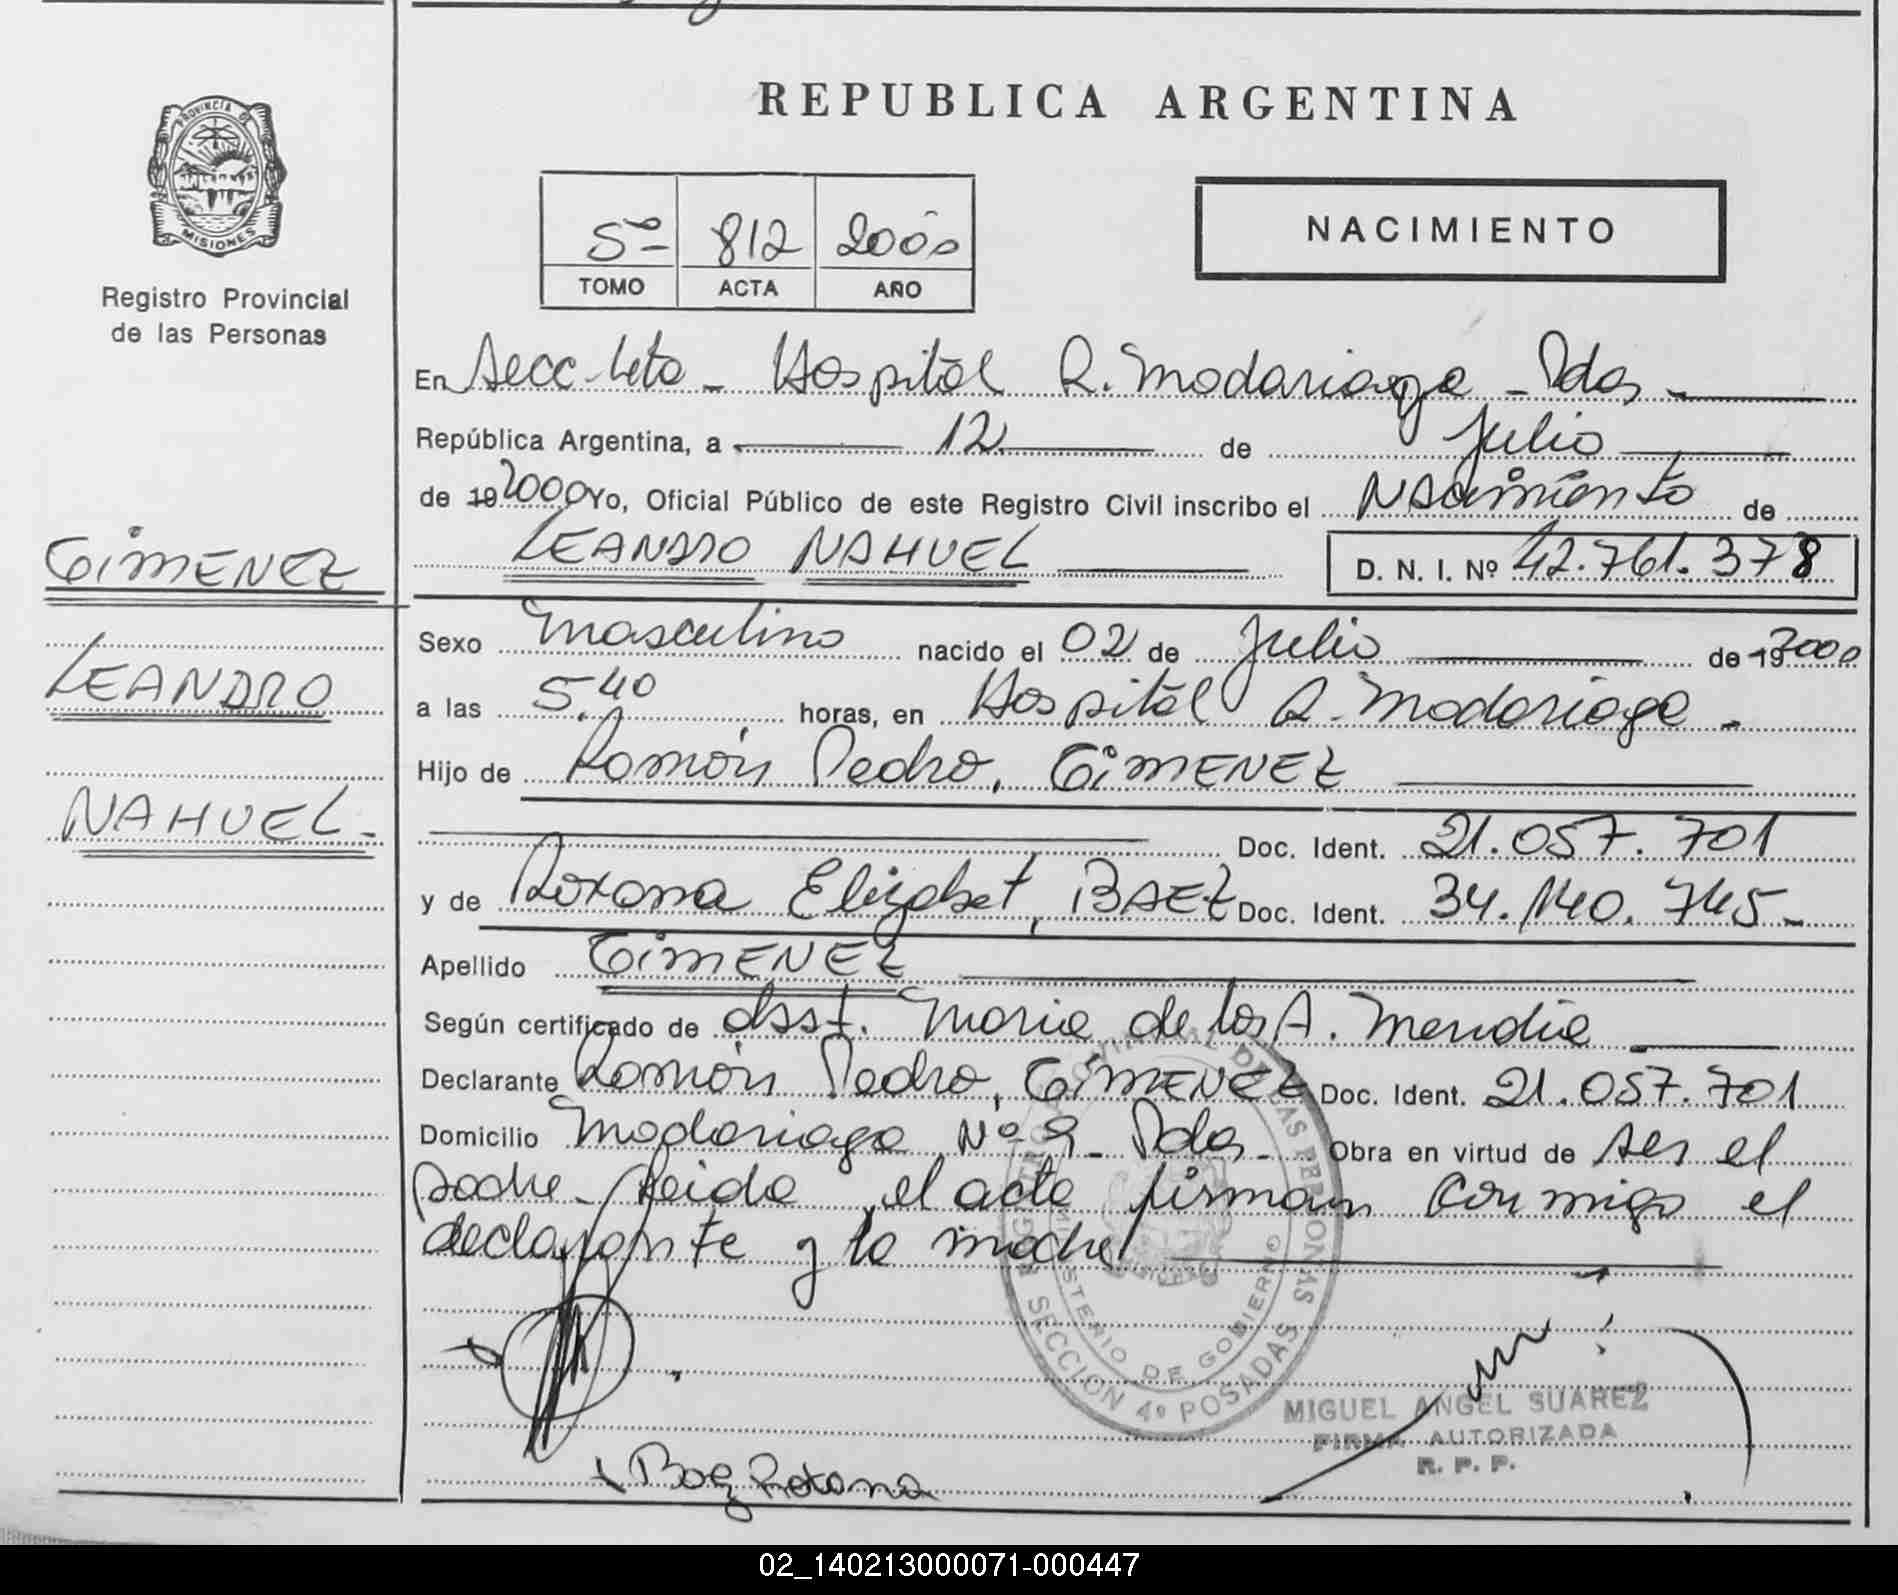 PROVINCIA DE
MISIONES
Registro Provincial
de las Personas
GIMENEZ
LEANDRO
NAHUEL.-
REPUBLICA ARGENTINA
5º- 812 2000
TOMO ACTA AÑO
NACIMIENTO
En Secc 4ta - Hospital R. Madariaga - Pdas -
República Argentina, a 12 de Julio
de 19 2000 Yo, Oficial Público de este Registro Civil inscribo el Nacimiento de
LEANDRO NAHUEL D. N. I. Nº 42.761.378
Sexo Masculino nacido el 02 de Julio de 19 2000
a las 5,40 horas, en Hospital R. Madariaga -
Hijo de Ramón Pedro, GIMENEZ
Doc. Ident. 21.057.701
y de Roxana Elizabet, BAEZ Doc. Ident. 34.140.745-
Apellido GIMENEZ
Según certificado de Obst. Maria de los A. Mendia
Declarante Ramón Pedro, GIMENEZ Doc. Ident. 21.057.701
Domicilio Madariaga Nº 9 - Pdas - Obra en virtud de ser el
padre - Leida el acta firman conmigo el
declarante y la madre
REGISTRO PROVINCIAL DE LAS PERSONAS
MINISTERIO DE GOBIERNO
MISIONES
SECCION 4º POSADAS
MIGUEL ANGEL SUAREZ
FIRMA AUTORIZADA
R. P. P.
Baez Roxana
02_140213000071-000447